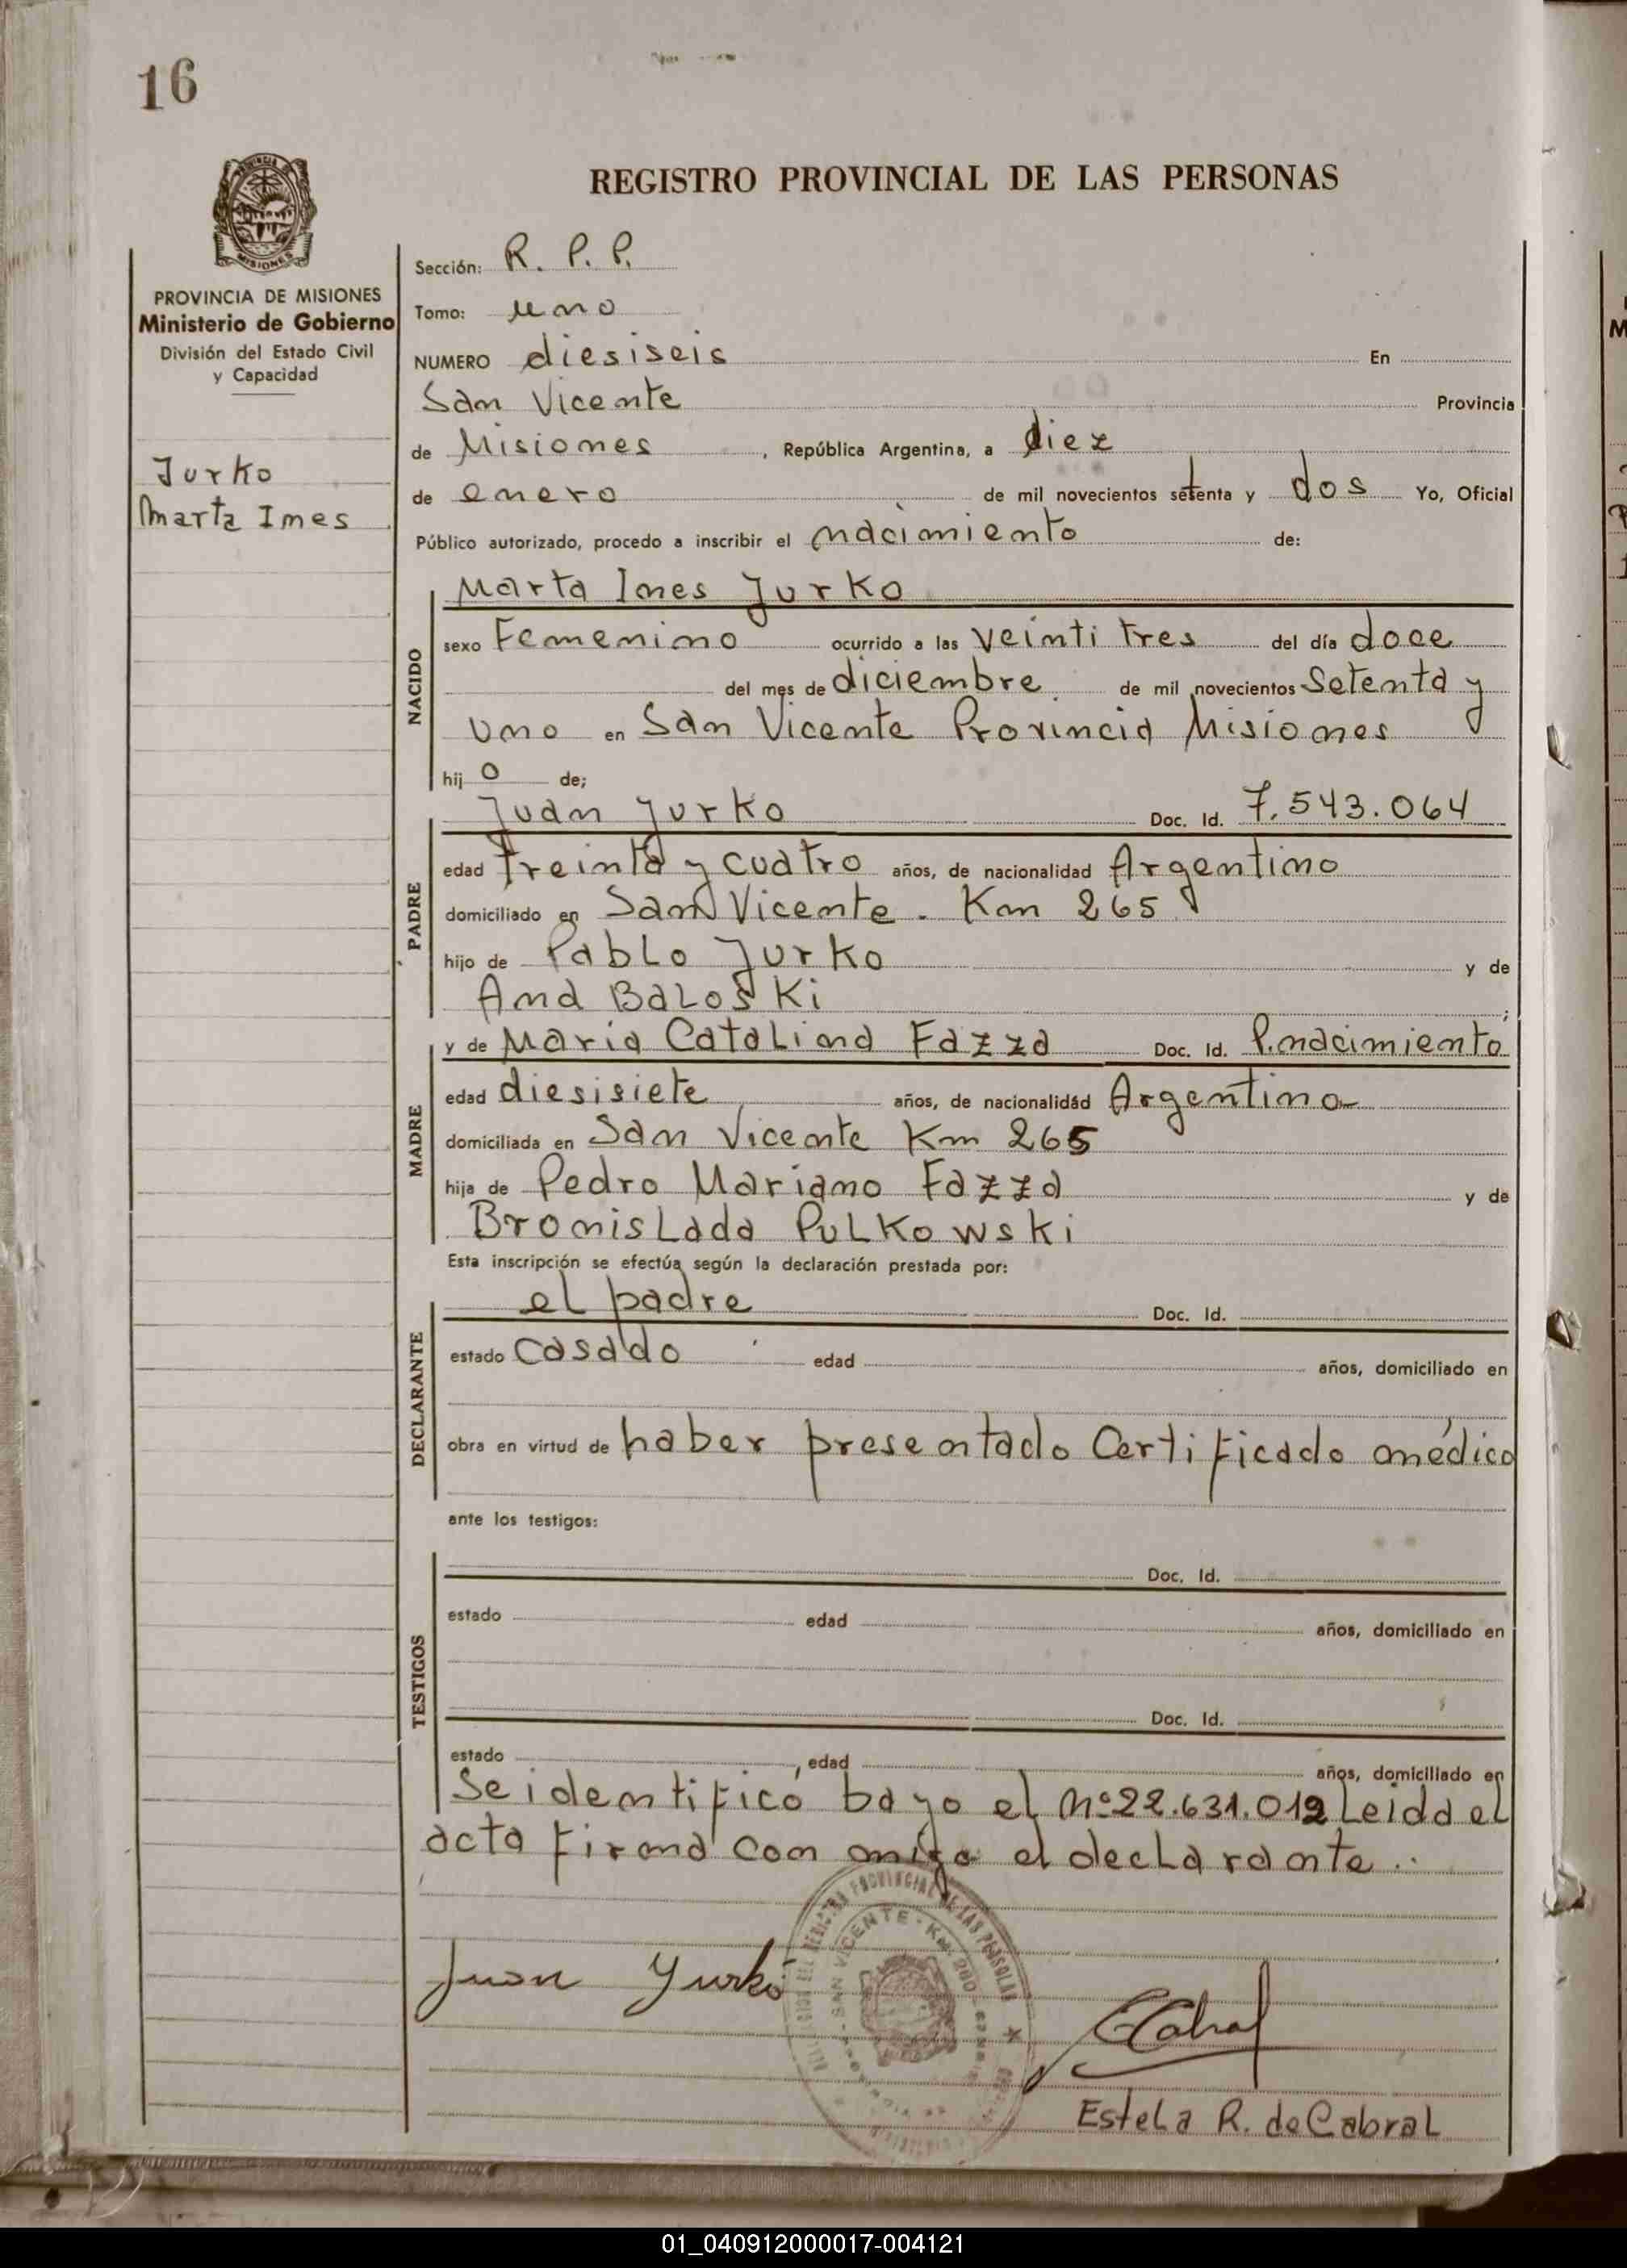 16
REGISTRO PROVINCIAL DE LAS PERSONAS
PROVINCIA DE MISIONES
Ministerio de Gobierno
División del Estado Civil
y Capacidad
Jurko
Marta Ines
Sección: R. P. P.
Tomo: uno
NUMERO diesiseis En
San Vicente Provincia
de Misiones, República Argentina, a diez
de enero de mil novecientos setenta y dos Yo, Oficial
Público autorizado, procedo a inscribir el nacimiento de:
NACIDO
Marta Ines Jurko
sexo Femenino ocurrido a las veinti tres del día doce
del mes de diciembre de mil novecientos Setenta y
uno en San Vicente Provincia Misiones
hij o de;
PADRE
Juan Jurko Doc. Id. 7.543.064
edad treinta y cuatro años, de nacionalidad Argentino
domiciliado en San Vicente. Km 265
hijo de Pablo Jurko y de
Ana Baloski ;
MADRE
y de María Catalina Fazza Doc. Id. P. nacimiento
edad diesisiete años, de nacionalidad Argentina
domiciliada en San Vicente Km 265
hija de Pedro Mariano Fazza y de
Bronislada Pulkowski
Esta inscripción se efectúa según la declaración prestada por:
DECLARANTE
el padre Doc. Id.
estado casado edad años, domiciliado en
obra en virtud de haber presentado Certificado médico
ante los testigos:
TESTIGOS
Doc. Id.
estado edad años, domiciliado en
Doc. Id.
estado , edad años, domiciliado en
Se identificó bajo el Nº 22.631.012 Leida el
acta firma con migo el declarante.
SAN VICENTE - KM. 260
Juan Yurko
ECabral
Estela R. de Cabral
01_040912000017-004121